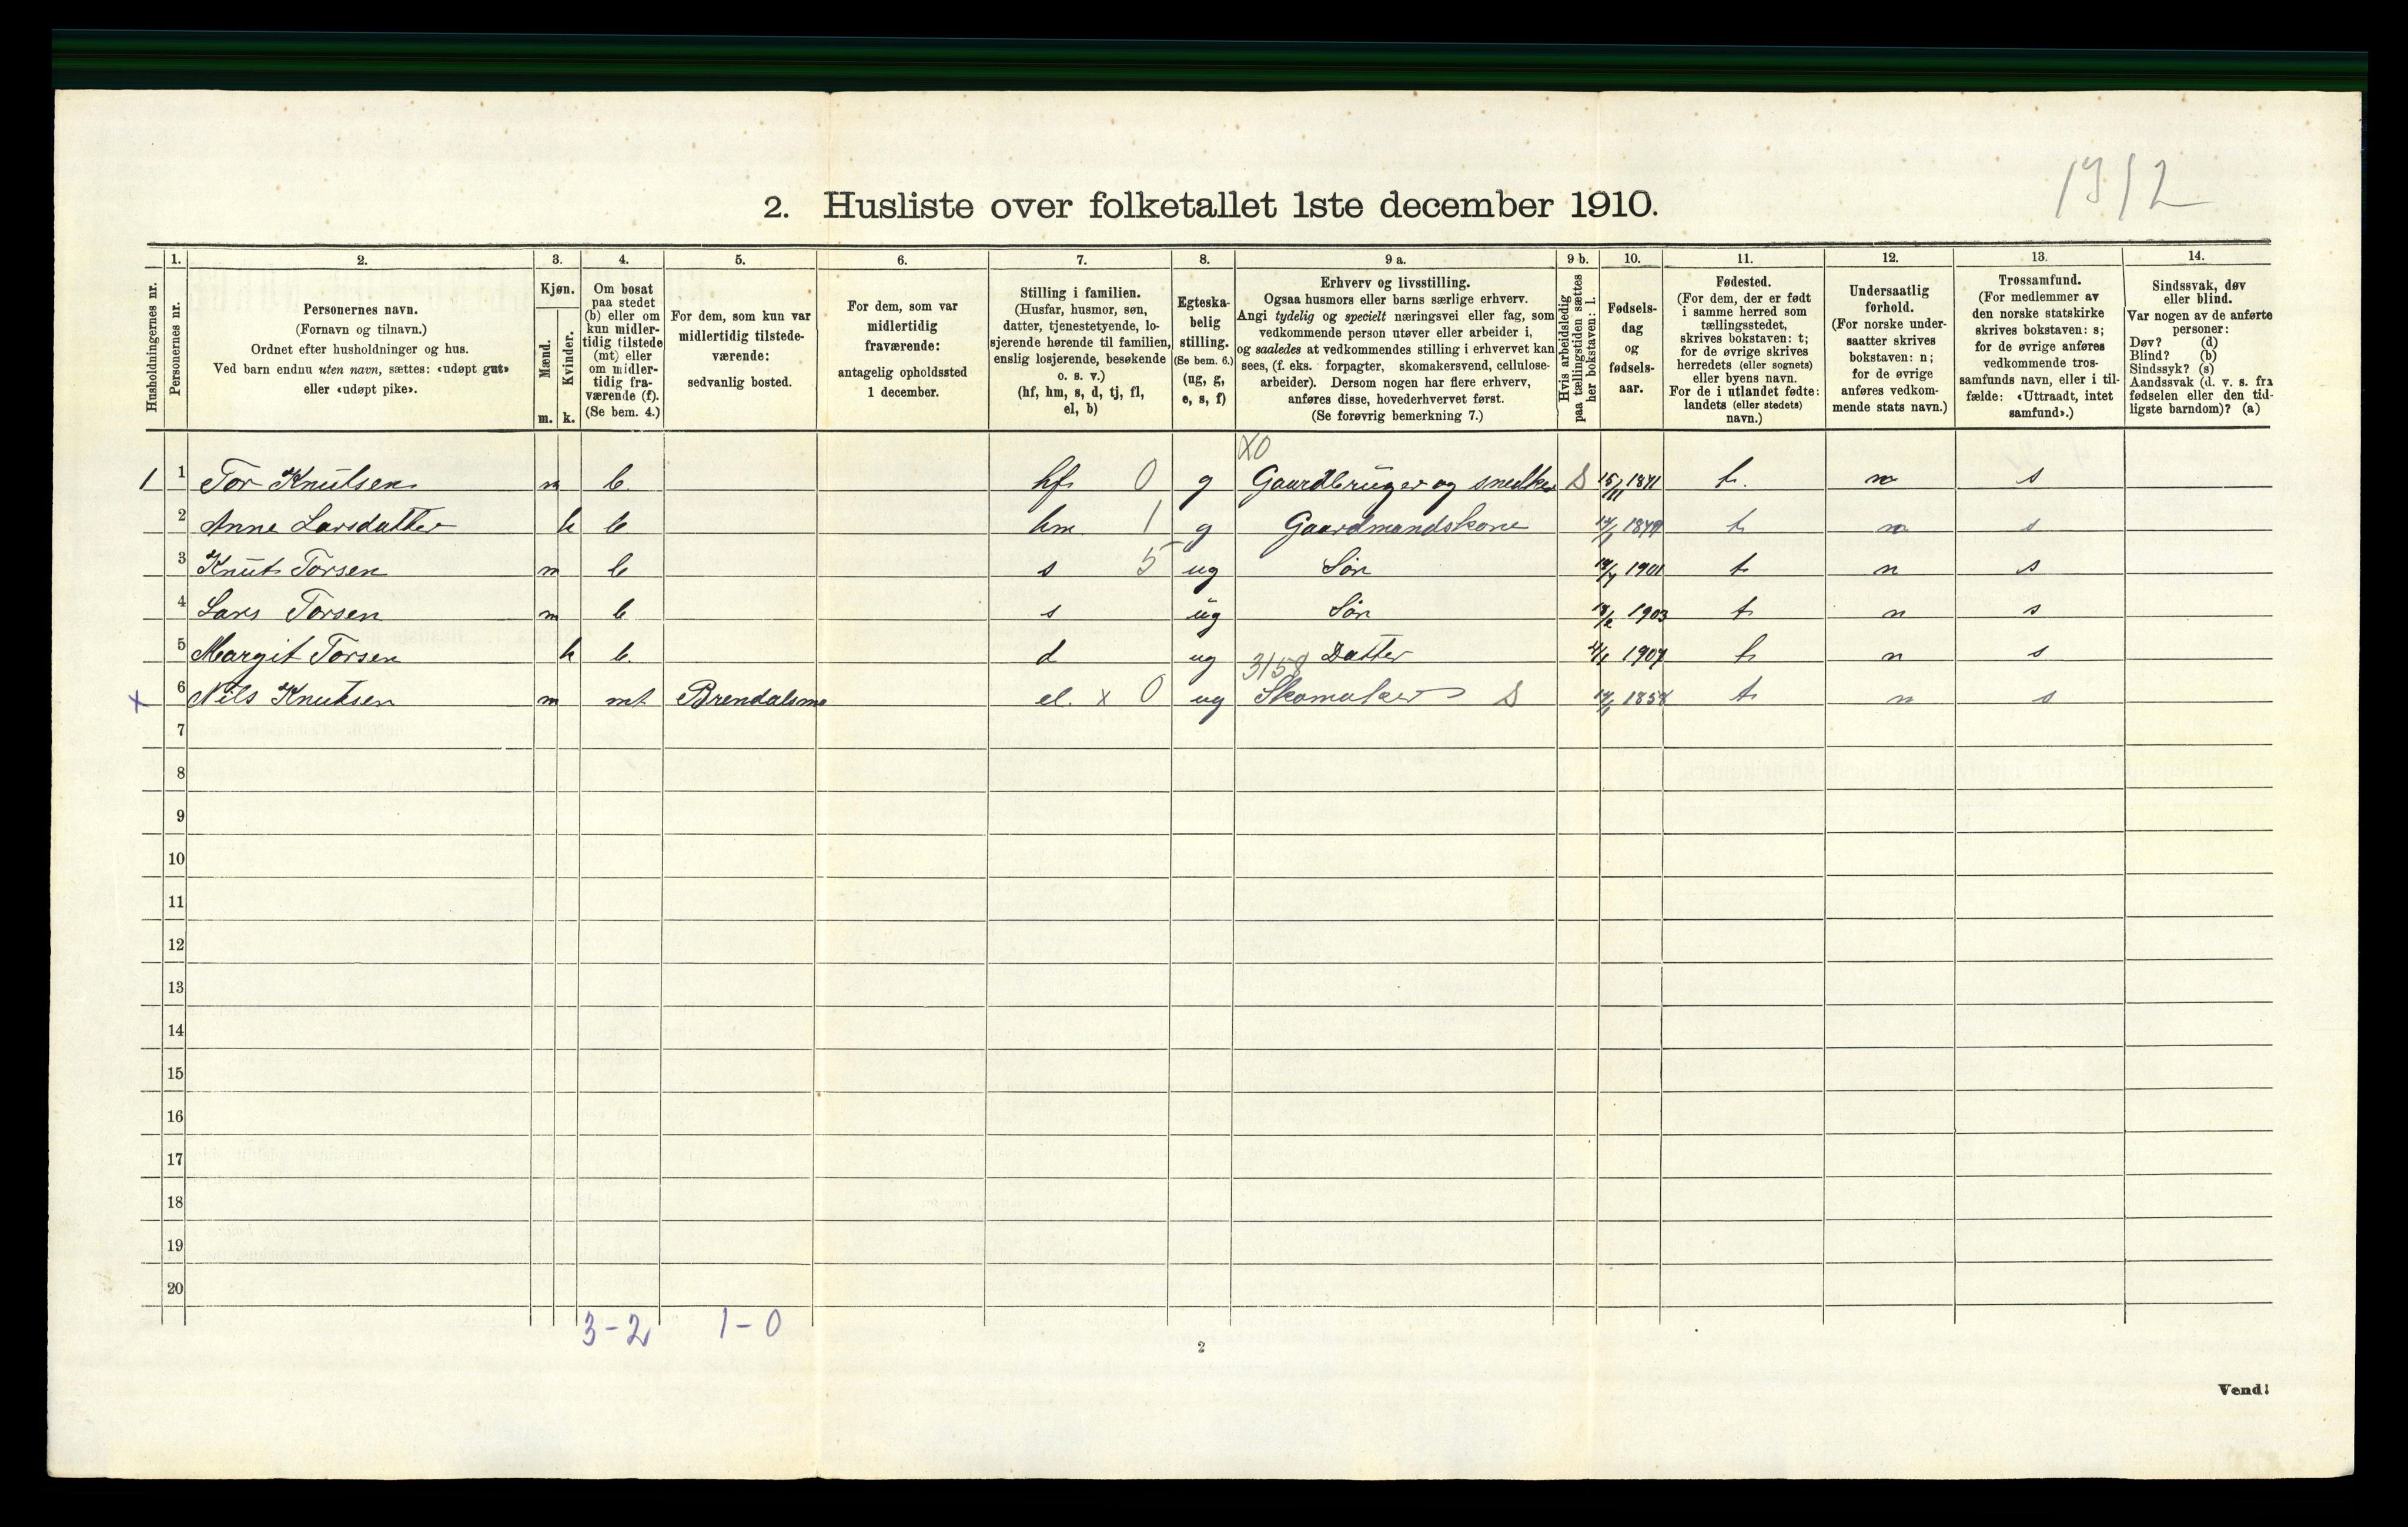 1912
2. Husliste over folketallet 1ste december 1910.
Husholdningernes nr.
1. Personernes nr.
2. Personernes navn. (Fornavn og tilnavn.) Ordnet efter husholdninger og hus. Ved barn endnu uten navn, sættes: «udøpt gut» eller «udøpt pike».
3. Kjøn. Mænd. m. Kvinder. k.
4. Om bosat paa stedet (b) eller om kun midlertidig tilstede (mt) eller om midlertidig fraværende (f). (Se bem. 4.)
5. For dem, som kun var midlertidig tilstedeværende: sedvanlig bosted.
6. For dem, som var midlertidig fraværende: antagelig opholdssted 1 december.
7. Stilling i familien. (Husfar, husmor, søn, datter, tjenestetyende, losjerende hørende til familien, enslig losjerende, besøkende o. s. v.) (hf, hm, s, d, tj, fl, el, b)
8. Egteskabelig stilling. (Se bem. 6.) (ug, g, e, s, f)
9 a. Erhverv og livsstilling. Ogsaa husmors eller barns særlige erhverv. Angi tydelig og specielt næringsvei eller fag, som vedkommende person utøver eller arbeider i, og saaledes at vedkommendes stilling i erhvervet kan sees, (f. eks. forpagter, skomakersvend, cellulosearbeider). Dersom nogen har flere erhverv, anføres disse, hovederhvervet først. (Se forøvrig bemerkning 7.)
9 b. Hvis arbeidsledig paa tællingstiden sættes her bokstaven: l.
10. Fødselsdag og fødselsaar.
11. Fødested. (For dem, der er født i samme herred som tællingsstedet, skrives bokstaven: t; for de øvrige skrives herredets (eller sognets) eller byens navn. For de i utlandet fødte: landets (eller stedets) navn.)
12. Undersaatlig forhold. (For norske undersaatter skrives bokstaven: n; for de øvrige anføres vedkommende stats navn.)
13. Trossamfund. (For medlemmer av den norske statskirke skrives bokstaven: s; for de øvrige anføres vedkommende trossamfunds navn, eller i tilfælde: «Uttraadt, intet samfund».)
14. Sindssvak, døv eller blind. Var nogen av de anførte personer: Døv? (d) Blind? (b) Sindssyk? (s) Aandssvak (d. v. s. fra fødselen eller den tidligste barndom)? (a)
X0
1 1 Tor Knutsen m b. hf. 0 g Gaardbruger og snedker S 15/11 1871 t. n s
2 Anne Larsdatter k b hm 1 g Gaardmandskone t n s
3 Knut Torsen m b s 5 ug Søn 1901 t n s
4 Lars Torsen m b s ug Søn 1903 t n s
5 Margit Torsen k b. d ug Datter 1907 t n s
3158
x 6 Nils Knutsen m mt Brendalsmo el. x 0 ug Skomaker S 1858 t n s
7
8
9
10
11
12
13
14
15
16
17
18
19
20
3-2 1-0
2
Vend!